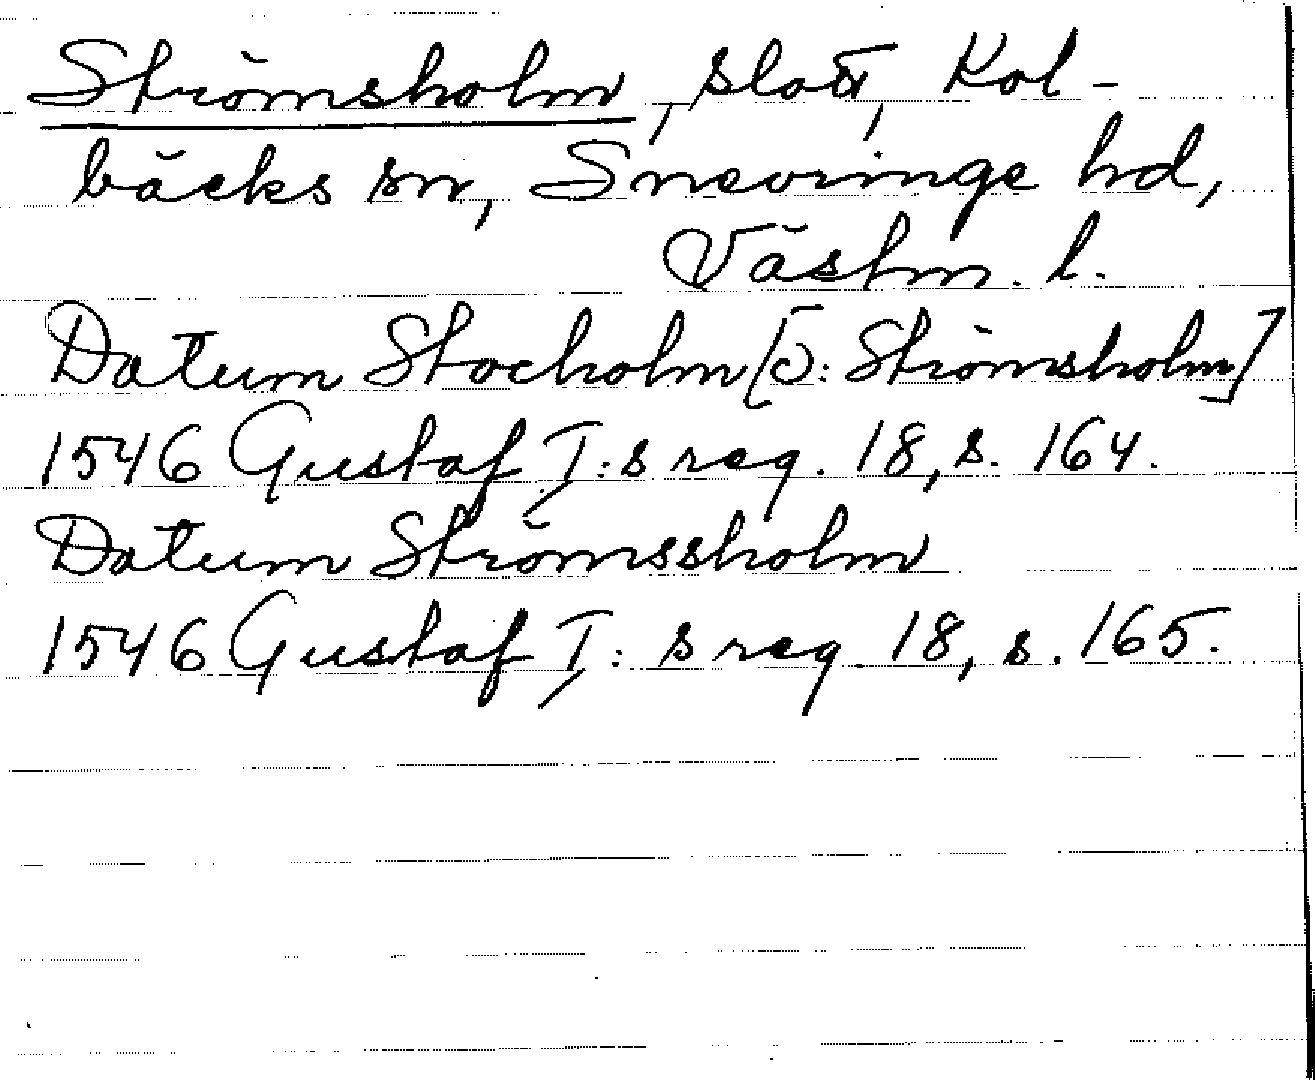 Strömsholm, slott, Kol-
bäcks sn, Snevringe hd,
Västm. l.
Datum Stocholm [ɔ: Strömsholm]
1546 Gustaf I:s reg. 18, s. 164.
Datum Strömssholm
1546 Gustaf I:s reg. 18, s. 165.